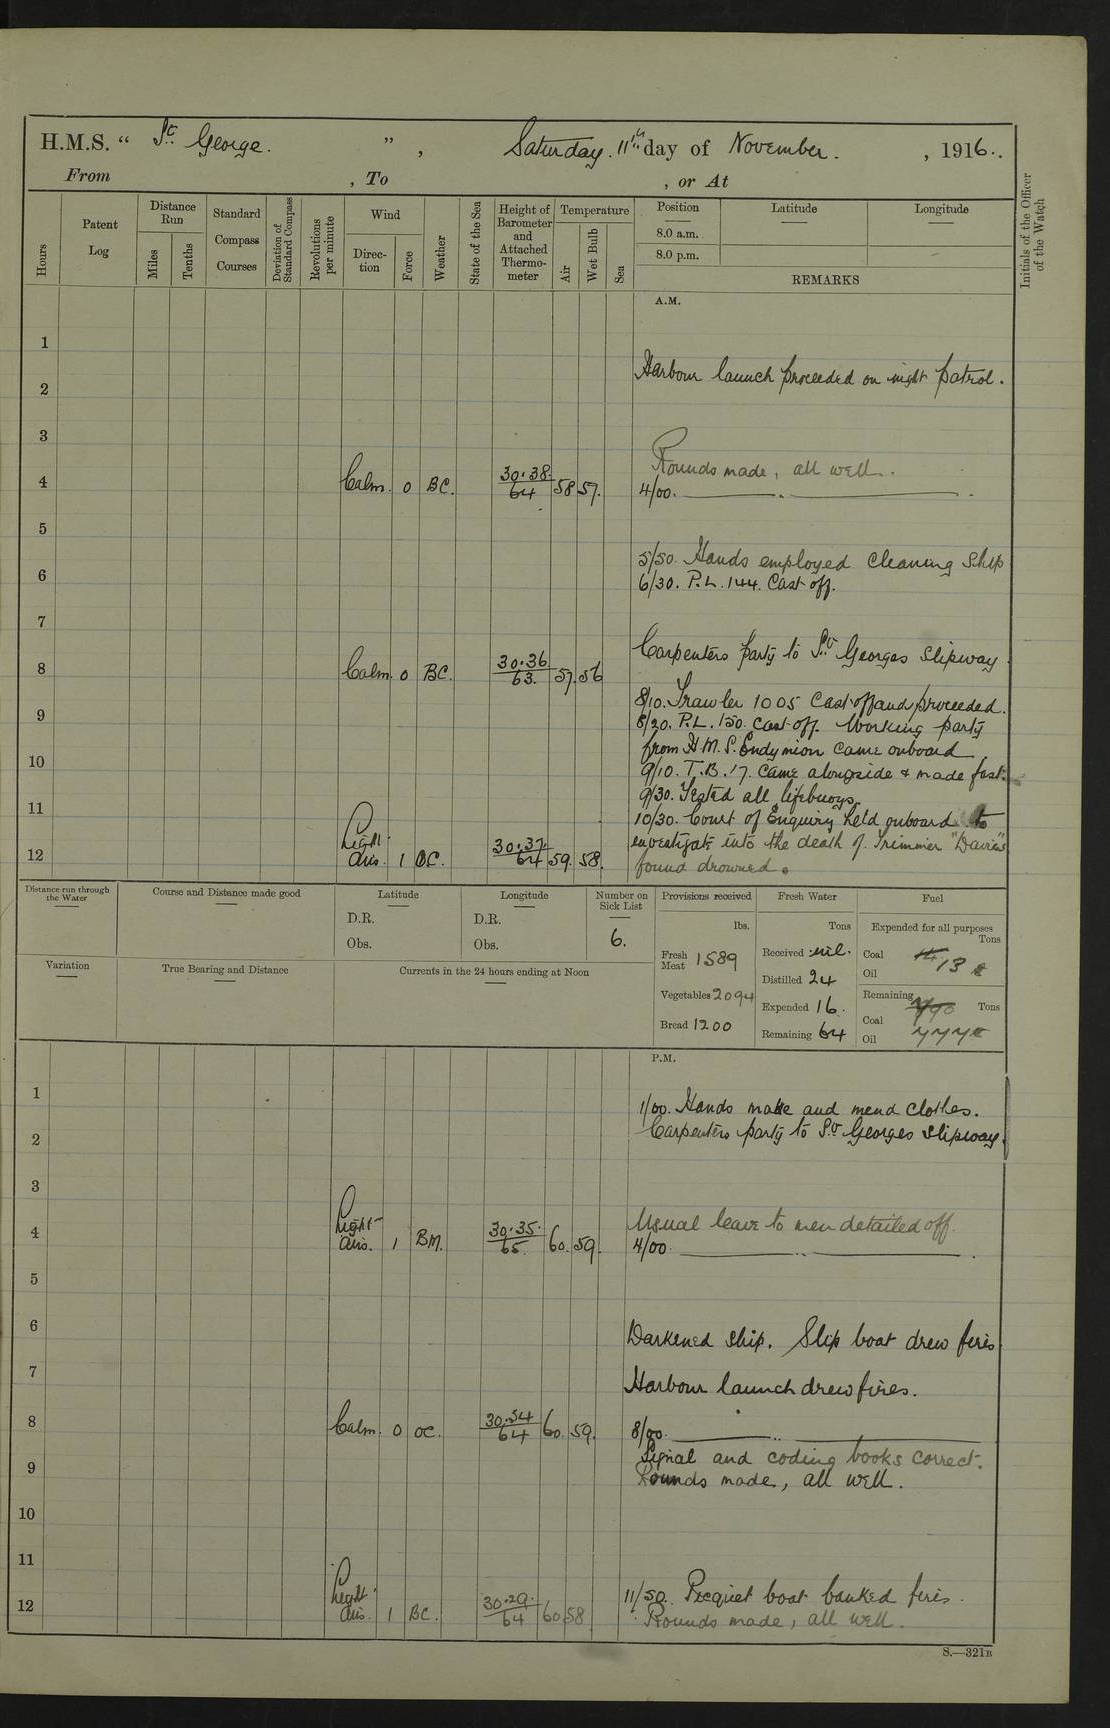 H.M.S. “ St George. ” , Saturday. 11th day of November. , 1916.
From , To , or At
Hours
Patent Log
Distance Run
Miles
Tenths
Standard Compass Courses
Deviation of Standard Compass
Revolutions per minute
Wind
Direction
Force
Weather
State of the Sea
Height of Barometer and Attached Thermometer
Temperature
Air
Wet Bulb
Sea
Position Latitude Longitude
8.0 a.m.
8.0 p.m.
REMARKS
Initials of the Officer of the Watch
A.M.
1
Harbour launch proceeded on night patrol.
2
3
Rounds made, all well.
4 Calm. 0 BC. 30.38. 64 58 57. 4/00.
5
5/50. Hands employed cleaning ship
6
6/30. P.L. 144. Cast off.
7
Carpenters party to St. Georges slipway.
8 Calm. 0 BC. 30.36 63. 57. 56
8/10. Trawler 1005 Cast off and proceeded.
9
8/20. P.L. 150. Cast off. Working party
from H.M.S. Endymion came onboard
10
9/10. T.B. 17. came alongside & made fast.
9/30. Tested all lifebuoys.
11
10/30. Court of Enquiry held onboard to
12 Light airs. 1 BC. 30.37. 64 59. 58.
investigate into the death of Trimmer "Davies"
found drowned.
Distance run through the Water
Course and Distance made good
Latitude
D.R.
Obs.
Longitude
D.R.
Obs.
Number on Sick List
6.
Provisions received
lbs.
Fresh Meat 1589
Vegetables 2094
Bread 1200
Fresh Water
Tons
Received nil.
Distilled 24
Expended 16.
Remaining 64
Fuel
Expended for all purposes
Tons
Coal 13
Oil
Remaining
Tons
Coal 777
Oil
Variation
True Bearing and Distance
Currents in the 24 hours ending at Noon
P.M.
1
1/00. Hands make and mend clothes.
2
Carpenters party to St. Georges slipway.
3
Usual leave to men detailed off.
4 Light airs. 1 BM. 30.35. 65. 60. 59. 4/00.
5
6
Darkened ship. Slip boat drew fires
7
Harbour launch drew fires.
8 Calm. 0 OC. 30.34 64 60. 59. 8/00.
Signal and coding books correct.
9
Rounds made, all well.
10
11
12 Light airs. 1 BC. 30.29. 64 60 58
11/50. Picquet boat banked fires.
Rounds made, all well.
S.—321B